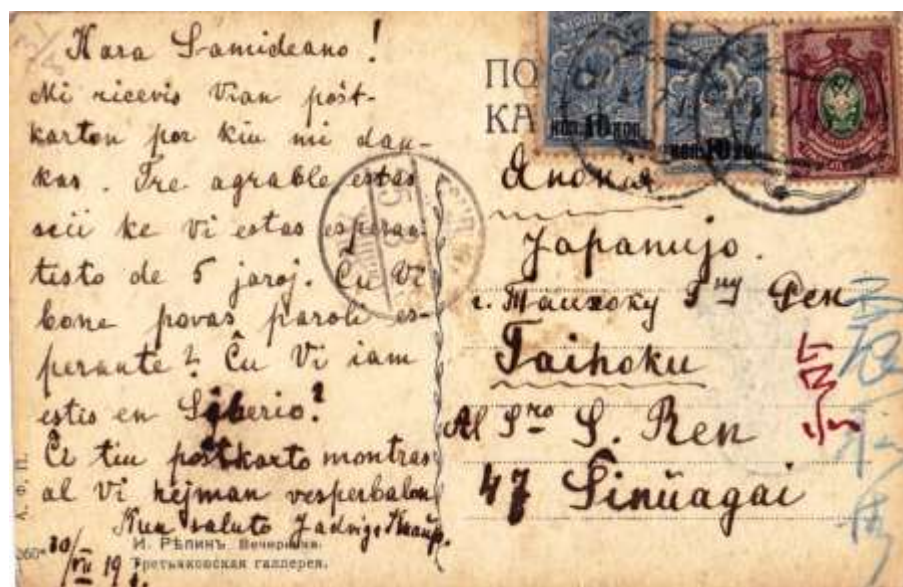 Kara Samideano!
Mi ricevis Vian poŝt-
karton por kiu mi dan-
kas. Tre agrable estas
scii ke Vi estas esperan-
tisto de 5 jaroj. Ĉu Vi
bone povas paroli es-
perante? Ĉu Vi iam
estis en Siberio?
Ĉi tiu poŝtkarto montras
al Vi hejman vesperbalon
Kun saluto Jadvigo
30/VII 19
И. Рѣпинъ. Вечерница.
Третьяковская галлерея.
А. Ф. П.
ПО
КА
коп. 10 коп.
коп. 10 коп.
Японія
Japanujo.
г. Таихоку Рен
Taihoku
Al Sro S. Ren
47 Ŝinŭagai